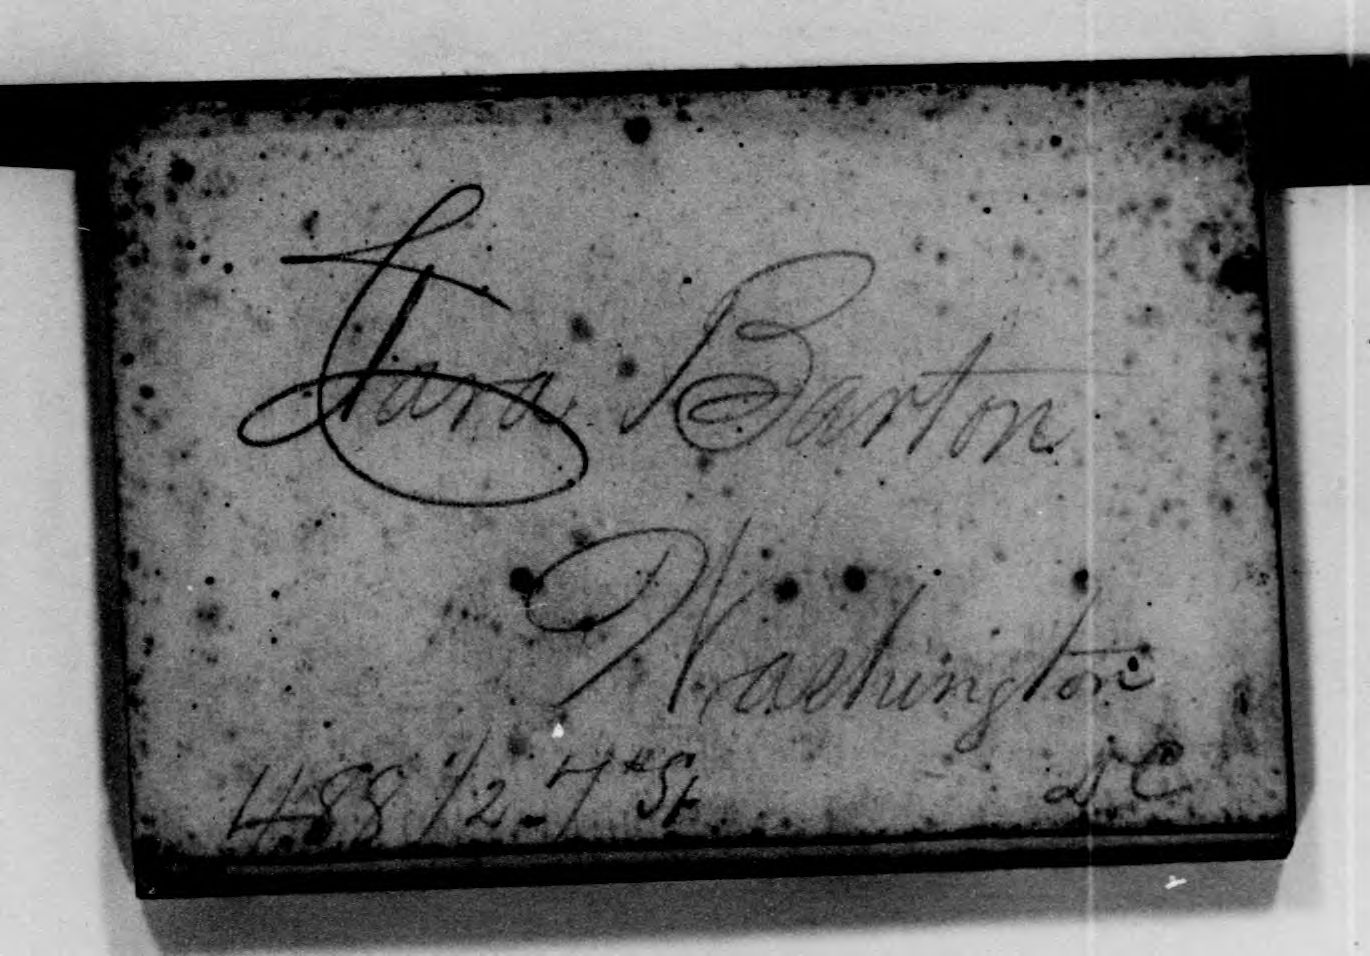 Clara Barton
Washington
D C
488 1/2 - 7th St